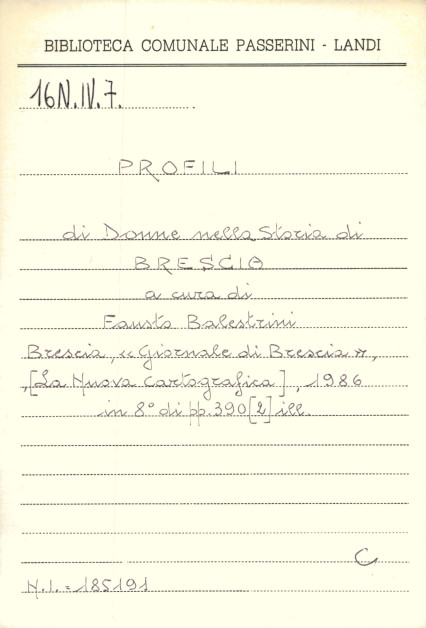 BIBLIOTECA COMUNALE PASSERINI - LANDI
16N.IV.7.
PROFILI
di Donne nella Storia di
BRESCIA
a cura di
Fausto Balestrini
Brescia, «Giornale di Brescia»,
,[La Nuova Cartografica], 1986
in 8° di pp. 390[2] ill.
C
N.I. = 185191